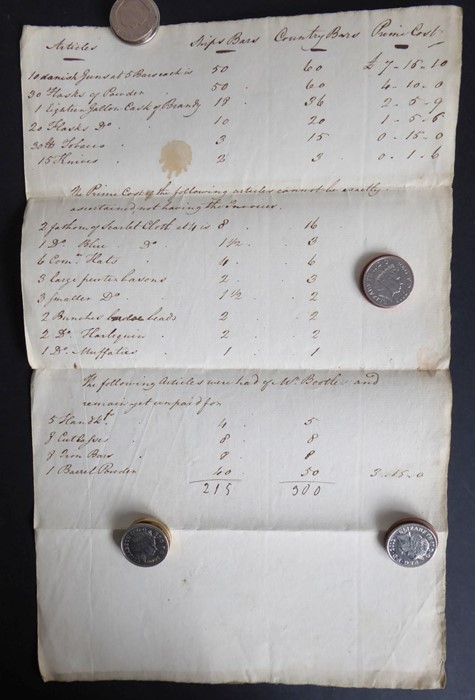 Articles Ships Bars Country Bars Prime Cost
10 danish Guns at 5 Bars each is 50 60 £ 7-15-10
30 flasks of Powder 50 60 4-10-0
1 Eighteen Gallon Cask of Brandy 18 36 2-5-9
20 Flasks Do. 10 20 1-5-6
30 lb Tobacco 3 15 0-15-0
15 Knives 2 3 0-1-6
The Prime Cost of the following articles cannot be exactly
ascertained not having the Invoices.
2 fathom of Scarlet Cloth at 4 is 8 16
1 Do. Blue Do 1½ 3
6 Comn. Hats 4 6
3 large pewter basons 2 3
3 smaller Do 1½ 2
2 Bunches beads 2 2
2 Do. Harlequin 2 2
1 Do. Muffaties 1 1
The following Articles were had of Mr. Bootle and
remain yet unpaid for
5 4 5
8 Cutlasses 8 8
8 Iron Bars 8 8
1 Barrel Powder 40 50
215 300